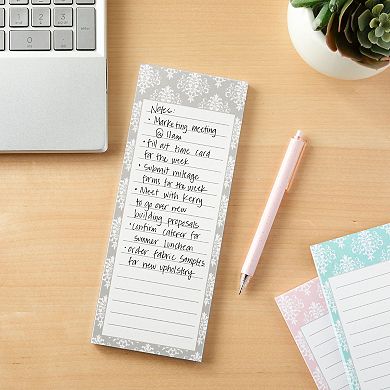 Notes:
• Marketing meeting
@ 11am
• Fill out time card
for the week
• Submit mileage
forms for the week
• Meet with Kerry
to go over new
building proposals
• Confirm caterer for
summer luncheon
• order fabric samples
for new upholstery